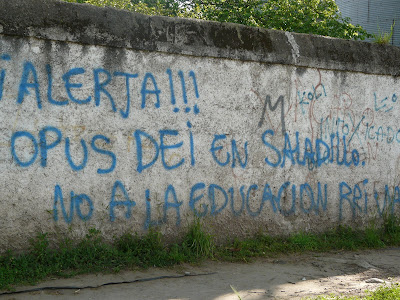 ¡ALERTA!!!
OPUS DEI EN SALADILLO.
NO A LA EDUCACION